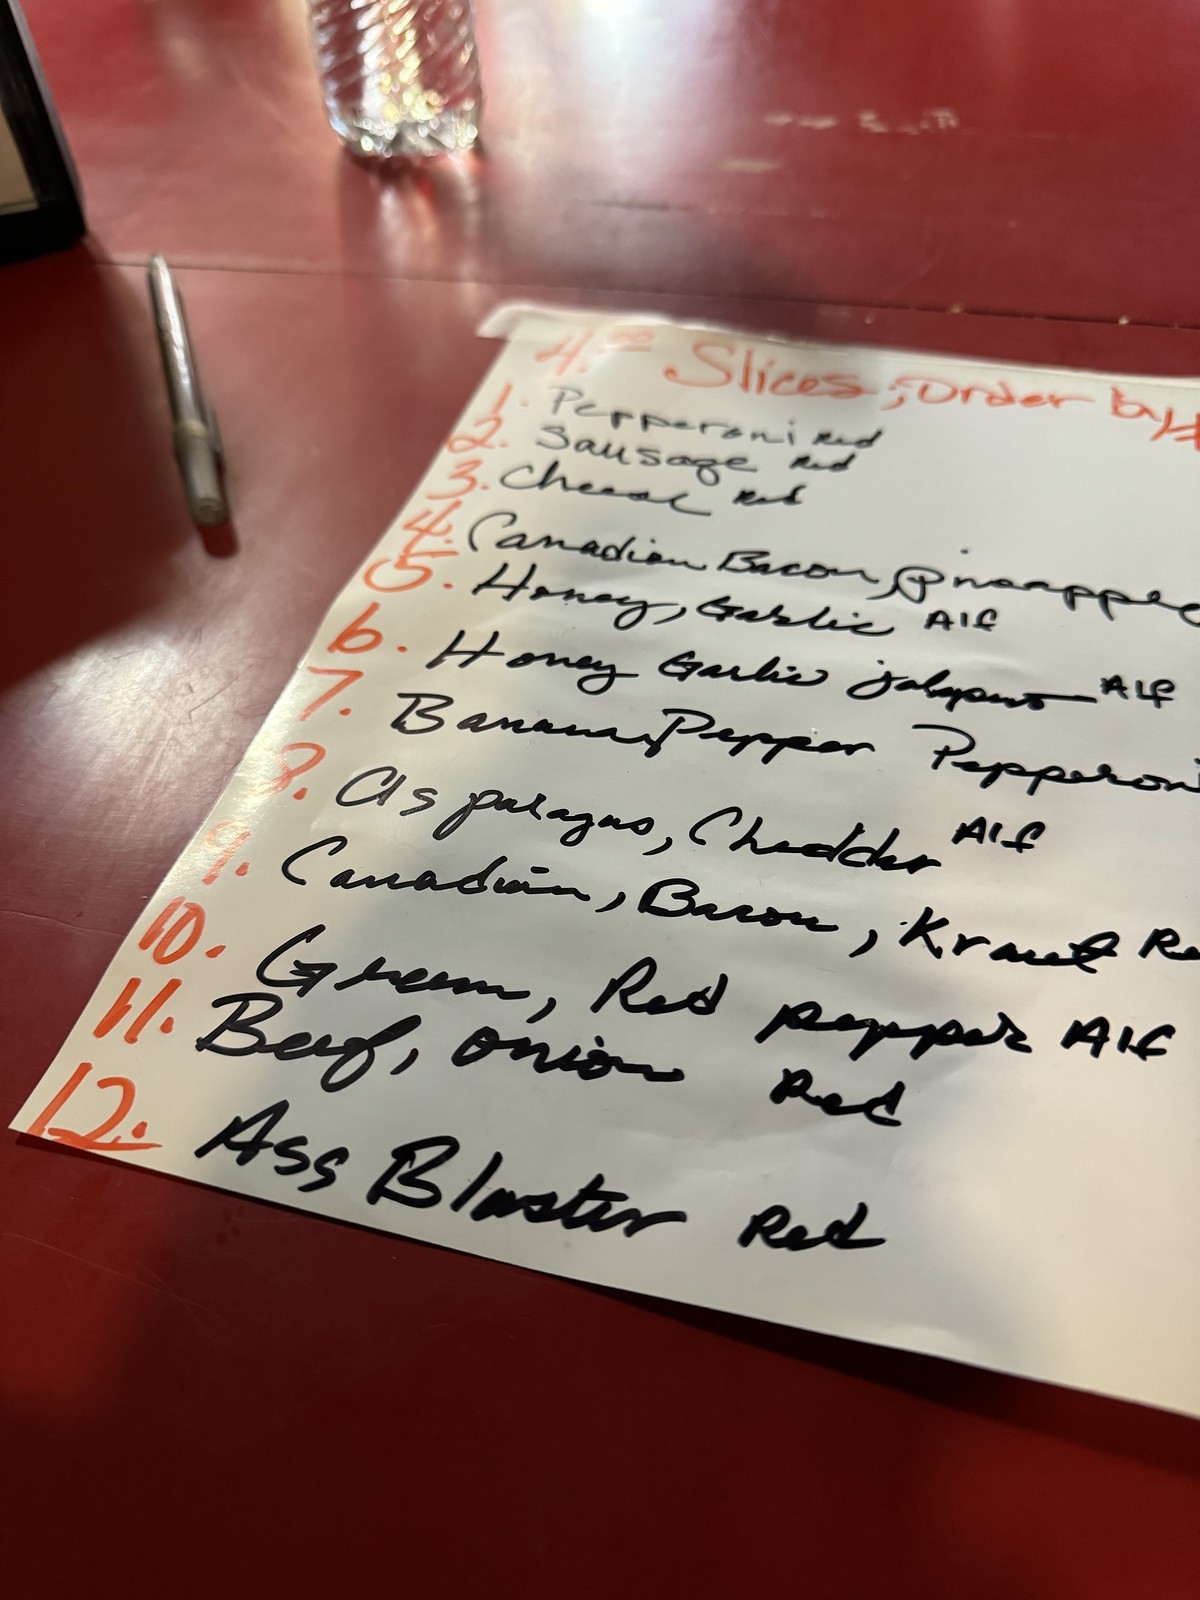 4.00 Slices, Order by #
1. Pepperoni Red
2. Sausage Red
3. Cheese Red
4. Canadian Bacon, Pineapple
5. Honey, Garlic Alf
6. Honey Garlic jalapeno Alf
7. Banana Pepper Pepperoni
8. Asparagus, Chedder Alf
9. Canadian, Bacon, Kraut Re
10. Green, Red pepper Alf
11. Beef, onion Red
12. Ass Blaster Red